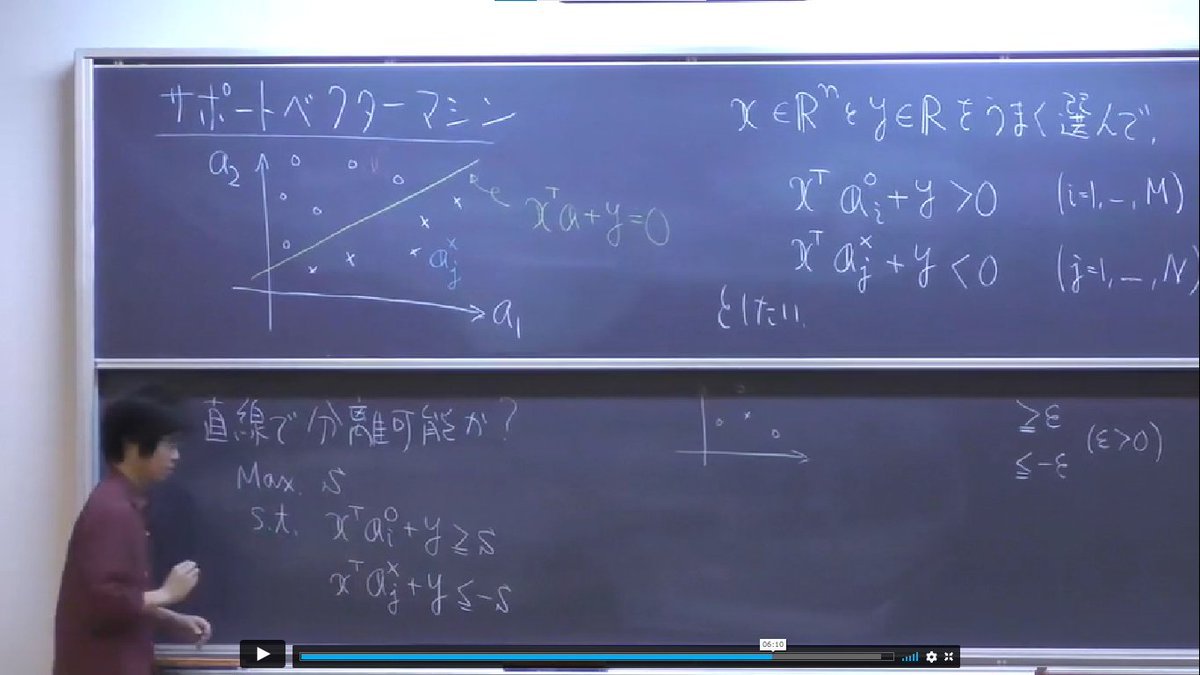 サポートベクターマシン
a₂
xᵀa+y=0
aⱼˣ
a₁
x∈Rⁿとy∈Rをうまく選んで、
xᵀaᵢ°+y>0 (i=1,…,M)
xᵀaⱼˣ+y<0 (j=1,…,N)
としたい。
直線で分離可能か?
Max. s
s.t. xᵀaᵢ°+y≧s
xᵀaⱼˣ+y≦-s
≧ε
≦-ε (ε>0)
06:10